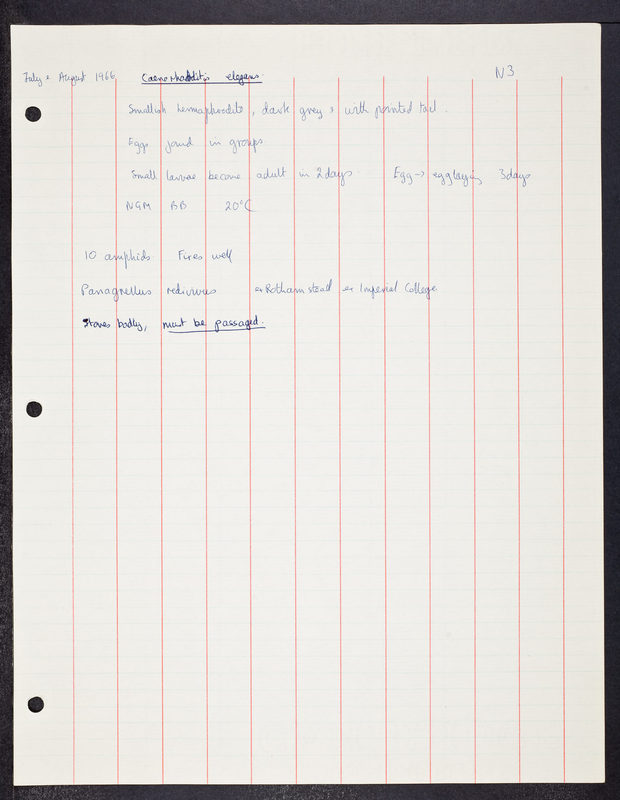 July & August 1966 Caenorhabditis elegans N3
Smallish hermaphrodite, dark grey, with pointed tail.
Eggs found in groups
Small larvae become adult in 2 days Egg → egg laying 3 days
NGM BB 20°C
10 amphids Fixes well
Panagrellus redivivus ex Rothamstead ex Imperial College.
Stores badly, must be passaged.